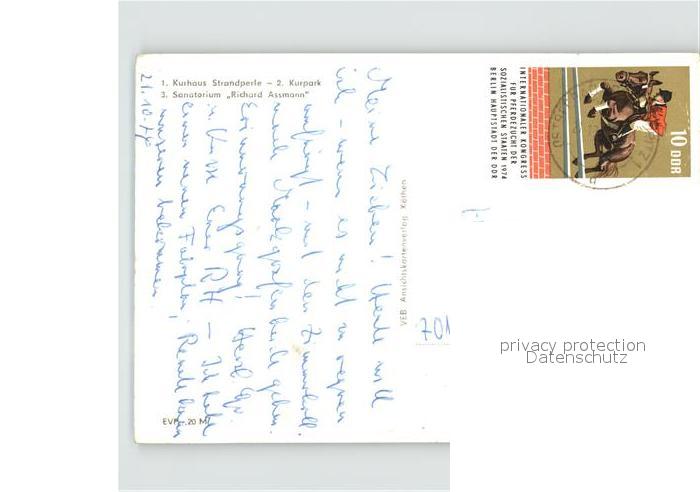 1. Kurhaus Strandperle – 2. Kurpark
3. Sanatorium „Richard Assmann"
21.10.74
Meine Lieben! Heute will
ich – wenn es nicht zu regnen
anfängt – mit den
nach gehen.
Erinnerungsgang! Herzl.
u. Eure RH – Ich habe
einen neuen Fahrplan,
bekommen.
VEB Ansichtskartenverlag Köthen
EVP -.20 M
INTERNATIONALER KONGRESS
FÜR PFERDEZUCHT DER
SOZIALISTISCHEN STAATEN 1974
BERLIN HAUPTSTADT DER DDR
10 DDR
701
privacy protection
Datenschutz